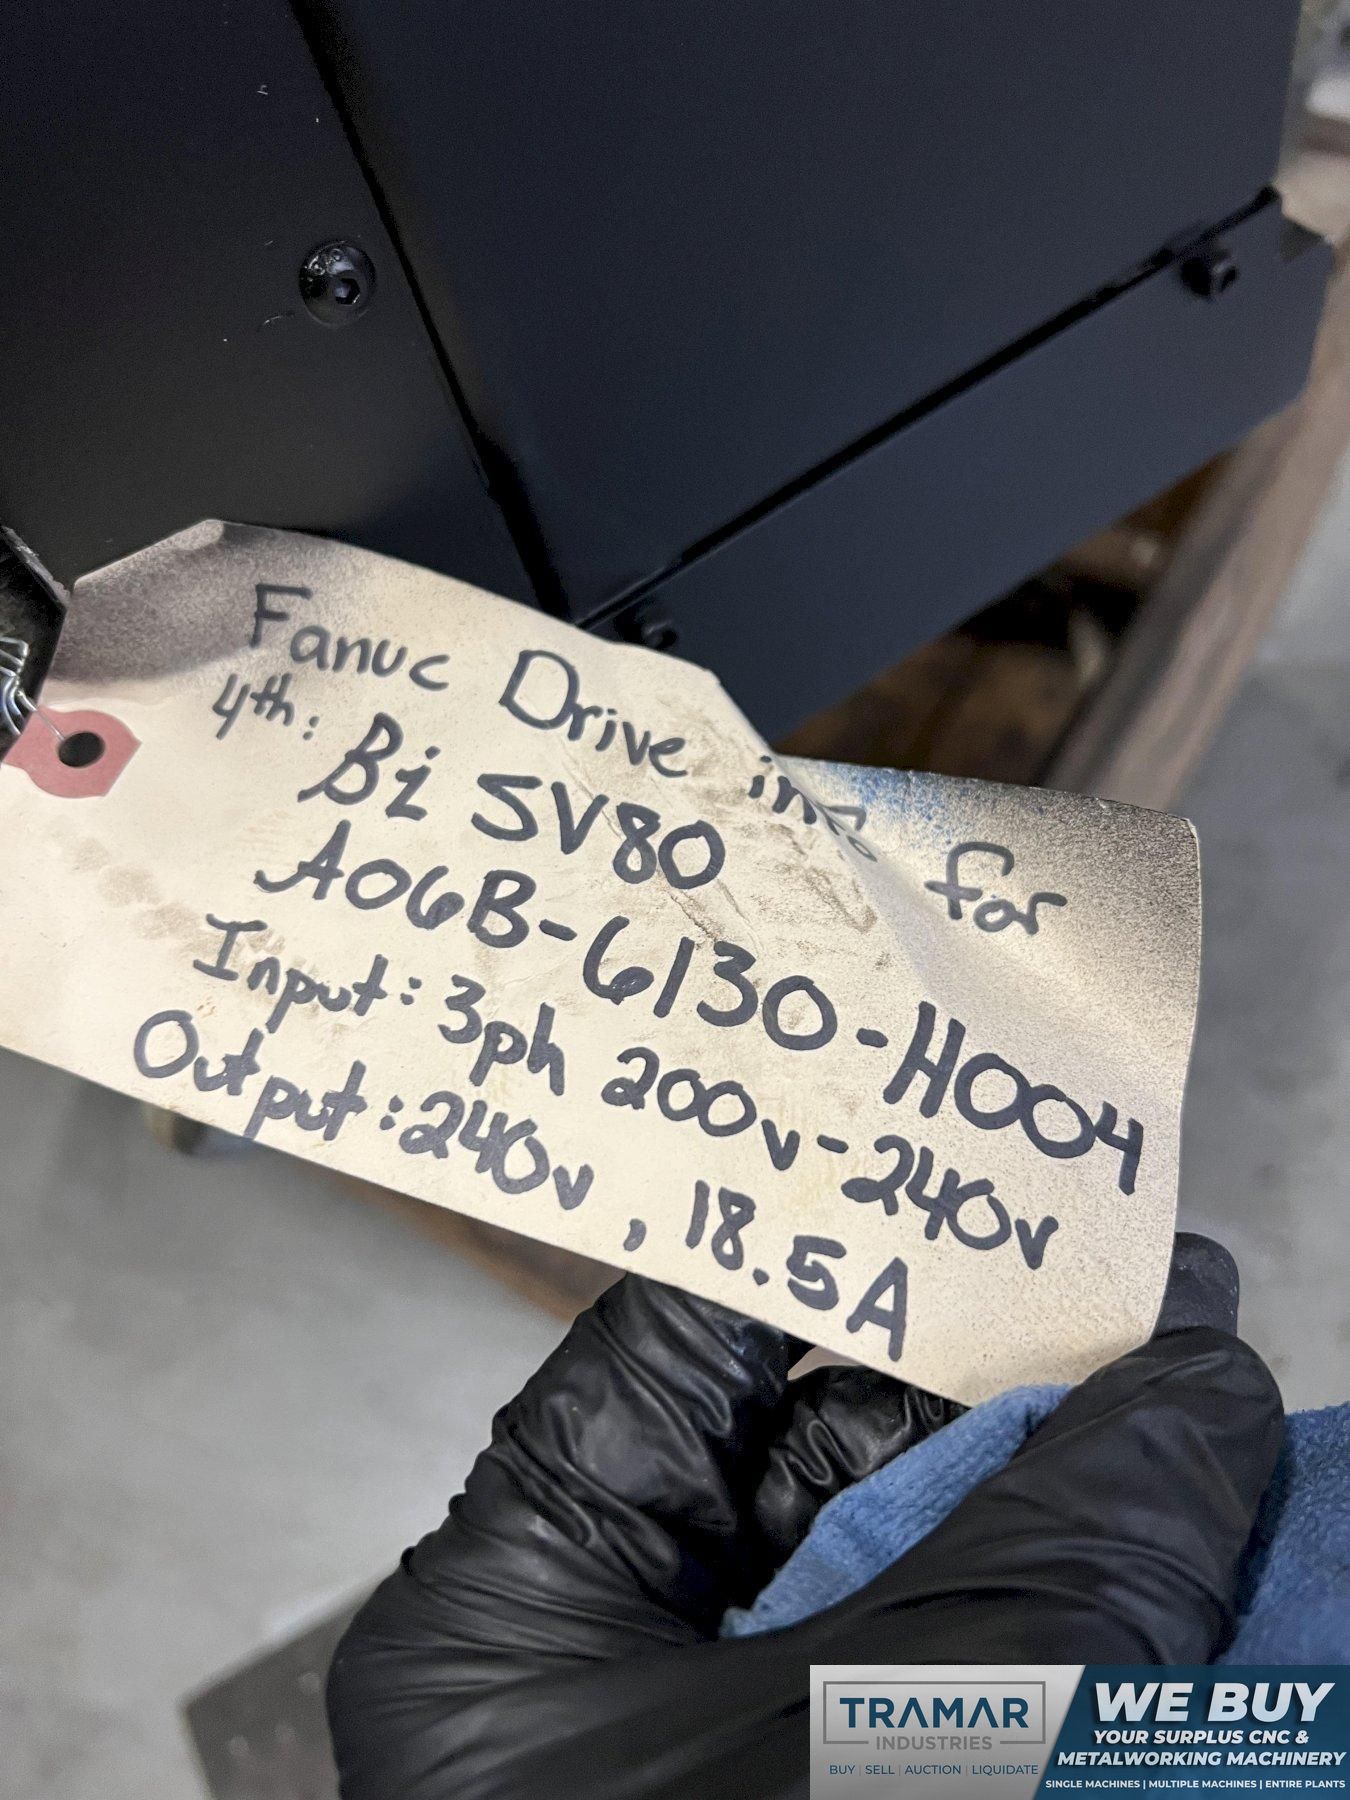 Fanuc Drive info for
4th: Bi SV80
A06B-6130-H004
Input: 3ph 200v-240v
Output: 240v, 18.5A
TRAMAR
INDUSTRIES
BUY | SELL | AUCTION | LIQUIDATE
WE BUY
YOUR SURPLUS CNC &
METALWORKING MACHINERY
SINGLE MACHINES | MULTIPLE MACHINES | ENTIRE PLANTS